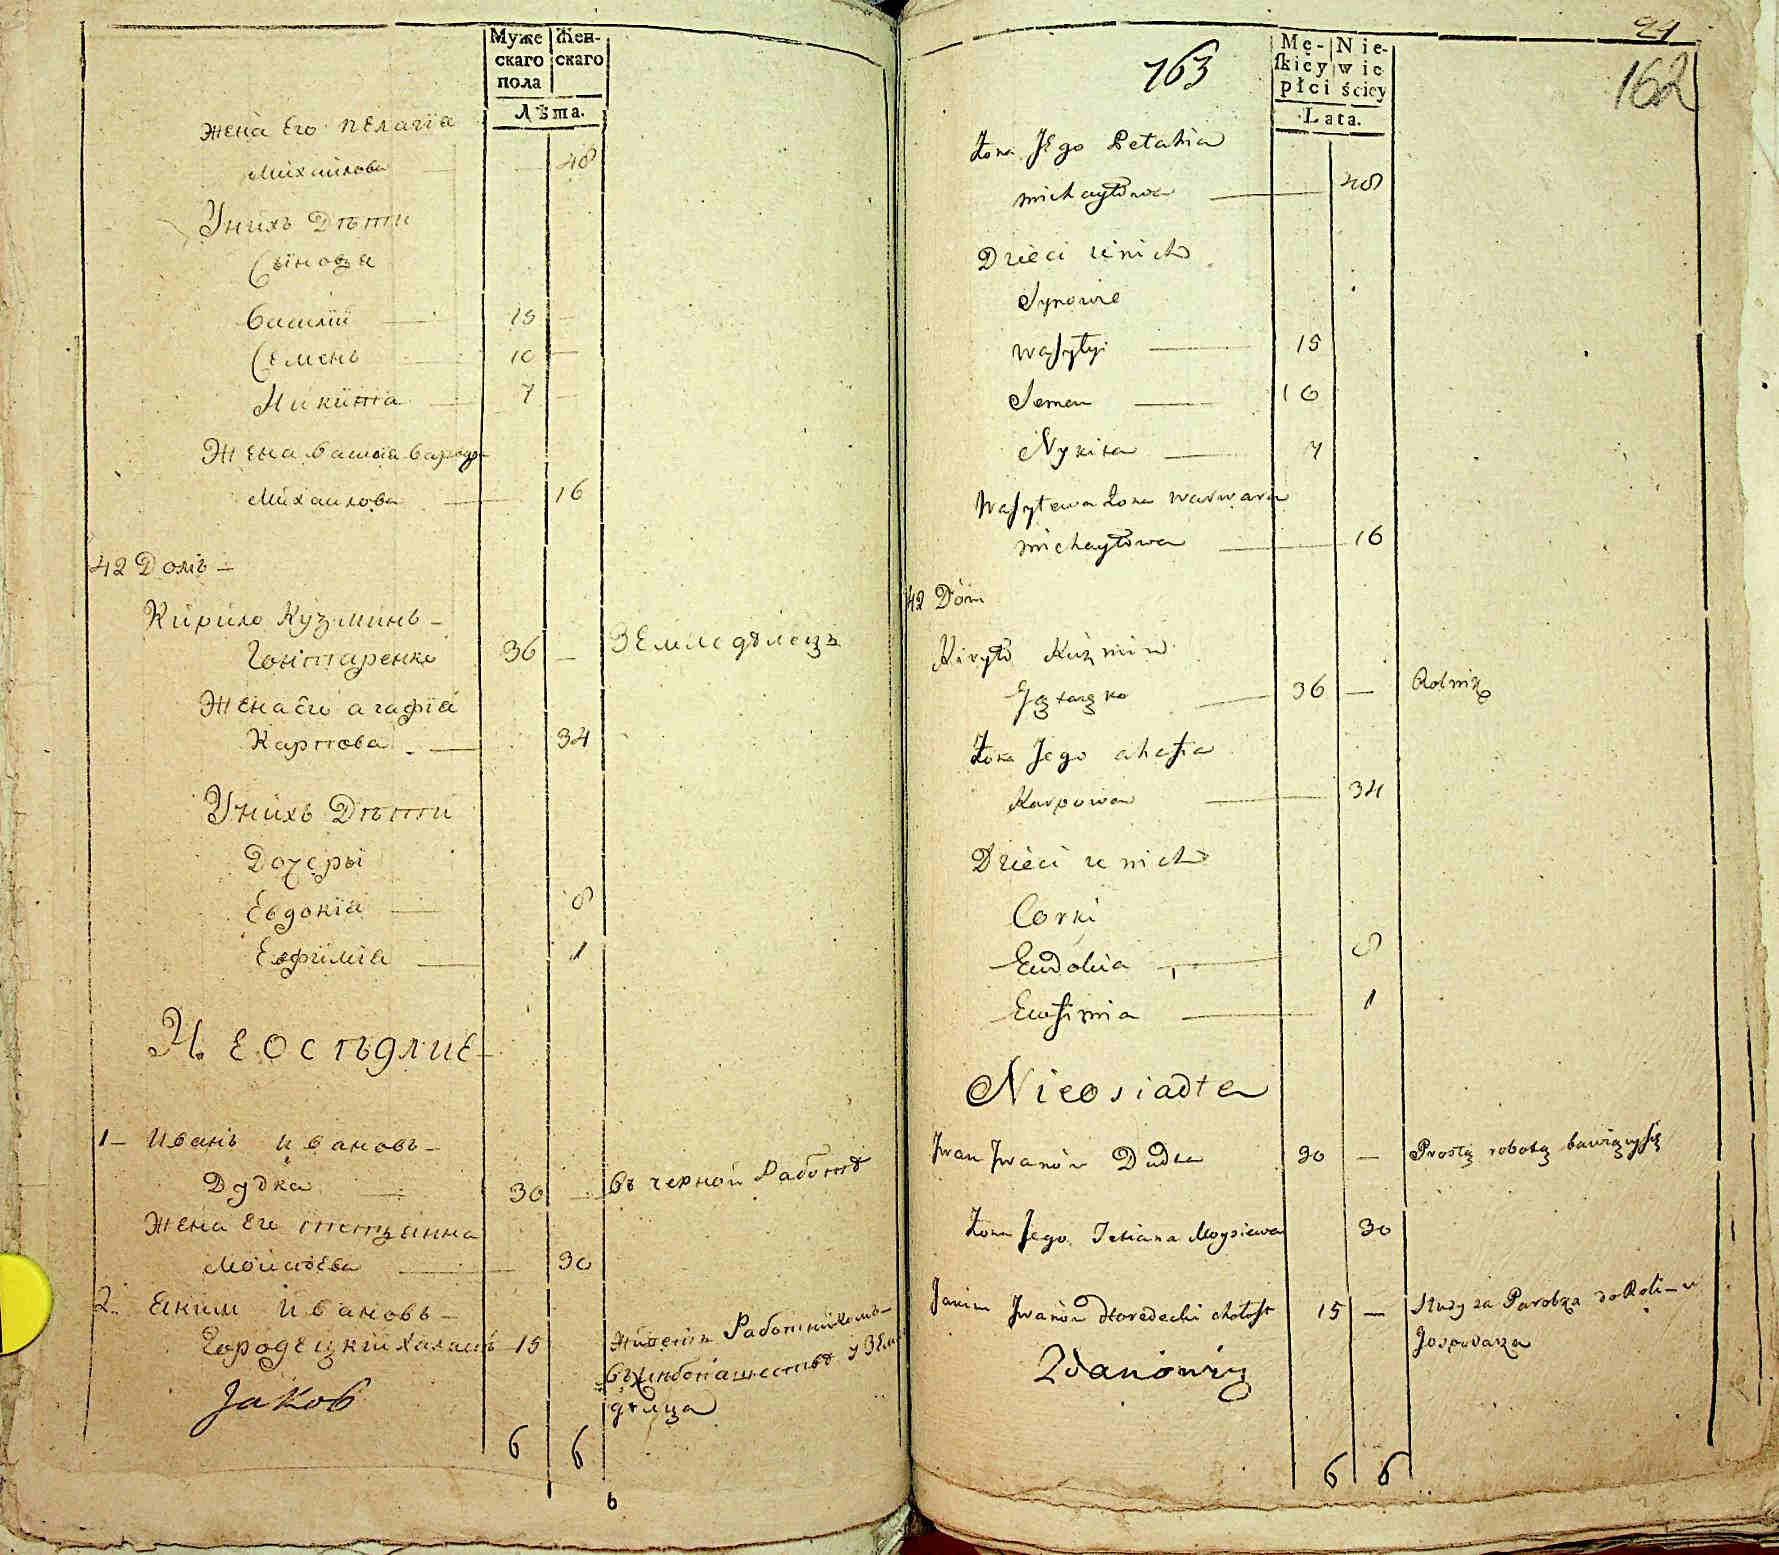 Муже Жен-
скаго скаго
пола
Лѣта.
Жена Его Пелагїа
Михаилова — 48
Унихъ Дѣти
Сынова
Василїй — 15 —
Семенъ — 10 —
Никита — 7 —
Жена Васїлїа Варвара
Михаилова — 16
42 Домъ —
Кирило Кузминъ —
Гонтаренко 36 — Земледѣлецъ
Жена Его агафїа
Карпова — 34
Унихъ Дѣти
Дочеры
Евдокїа — 8
Евфимїа — 1
Неосѣдлие
1 — Иванъ Ивановъ —
Дудка — 30 — Въ черной Работѣ
Жена Его татианна
Моисѣева — 30
2. Еким Ивановъ —
Городецкїй Халастъ 15 Живетъ Работникомъ —
Въхлѣбопашествѣ у Зем
дѣлца
Jakob
6 6
6
21
163
162
Mę- Nie-
ſkiey wie
płci ściey
Lata.
Żona Jego Pelahia
michayłowa — 48
Dzieci u nich
Synowie
Wasyłyi — 15
Semen — 10
Nykita — 7
Wasylewa Żona Warwara
michayłowa — 16
42 Dóm
Kiryło Kuzmin
— 36 — Rolnik
Żona Jego ahafia
Karpowa — 34
Dzieci u nich
Corki
Eudokia — 8
Eufimia — 1
Nieosiadłe
Iwan Iwanów Dudka 30 — Prostą robotą bawiący się
Żona Jego Tatiana Moysiewa 30
Jakim Iwanów Horodecki chołost 15 — Służy za Parobka do Roli u
Gospodarza
Zdanowicz
6 6